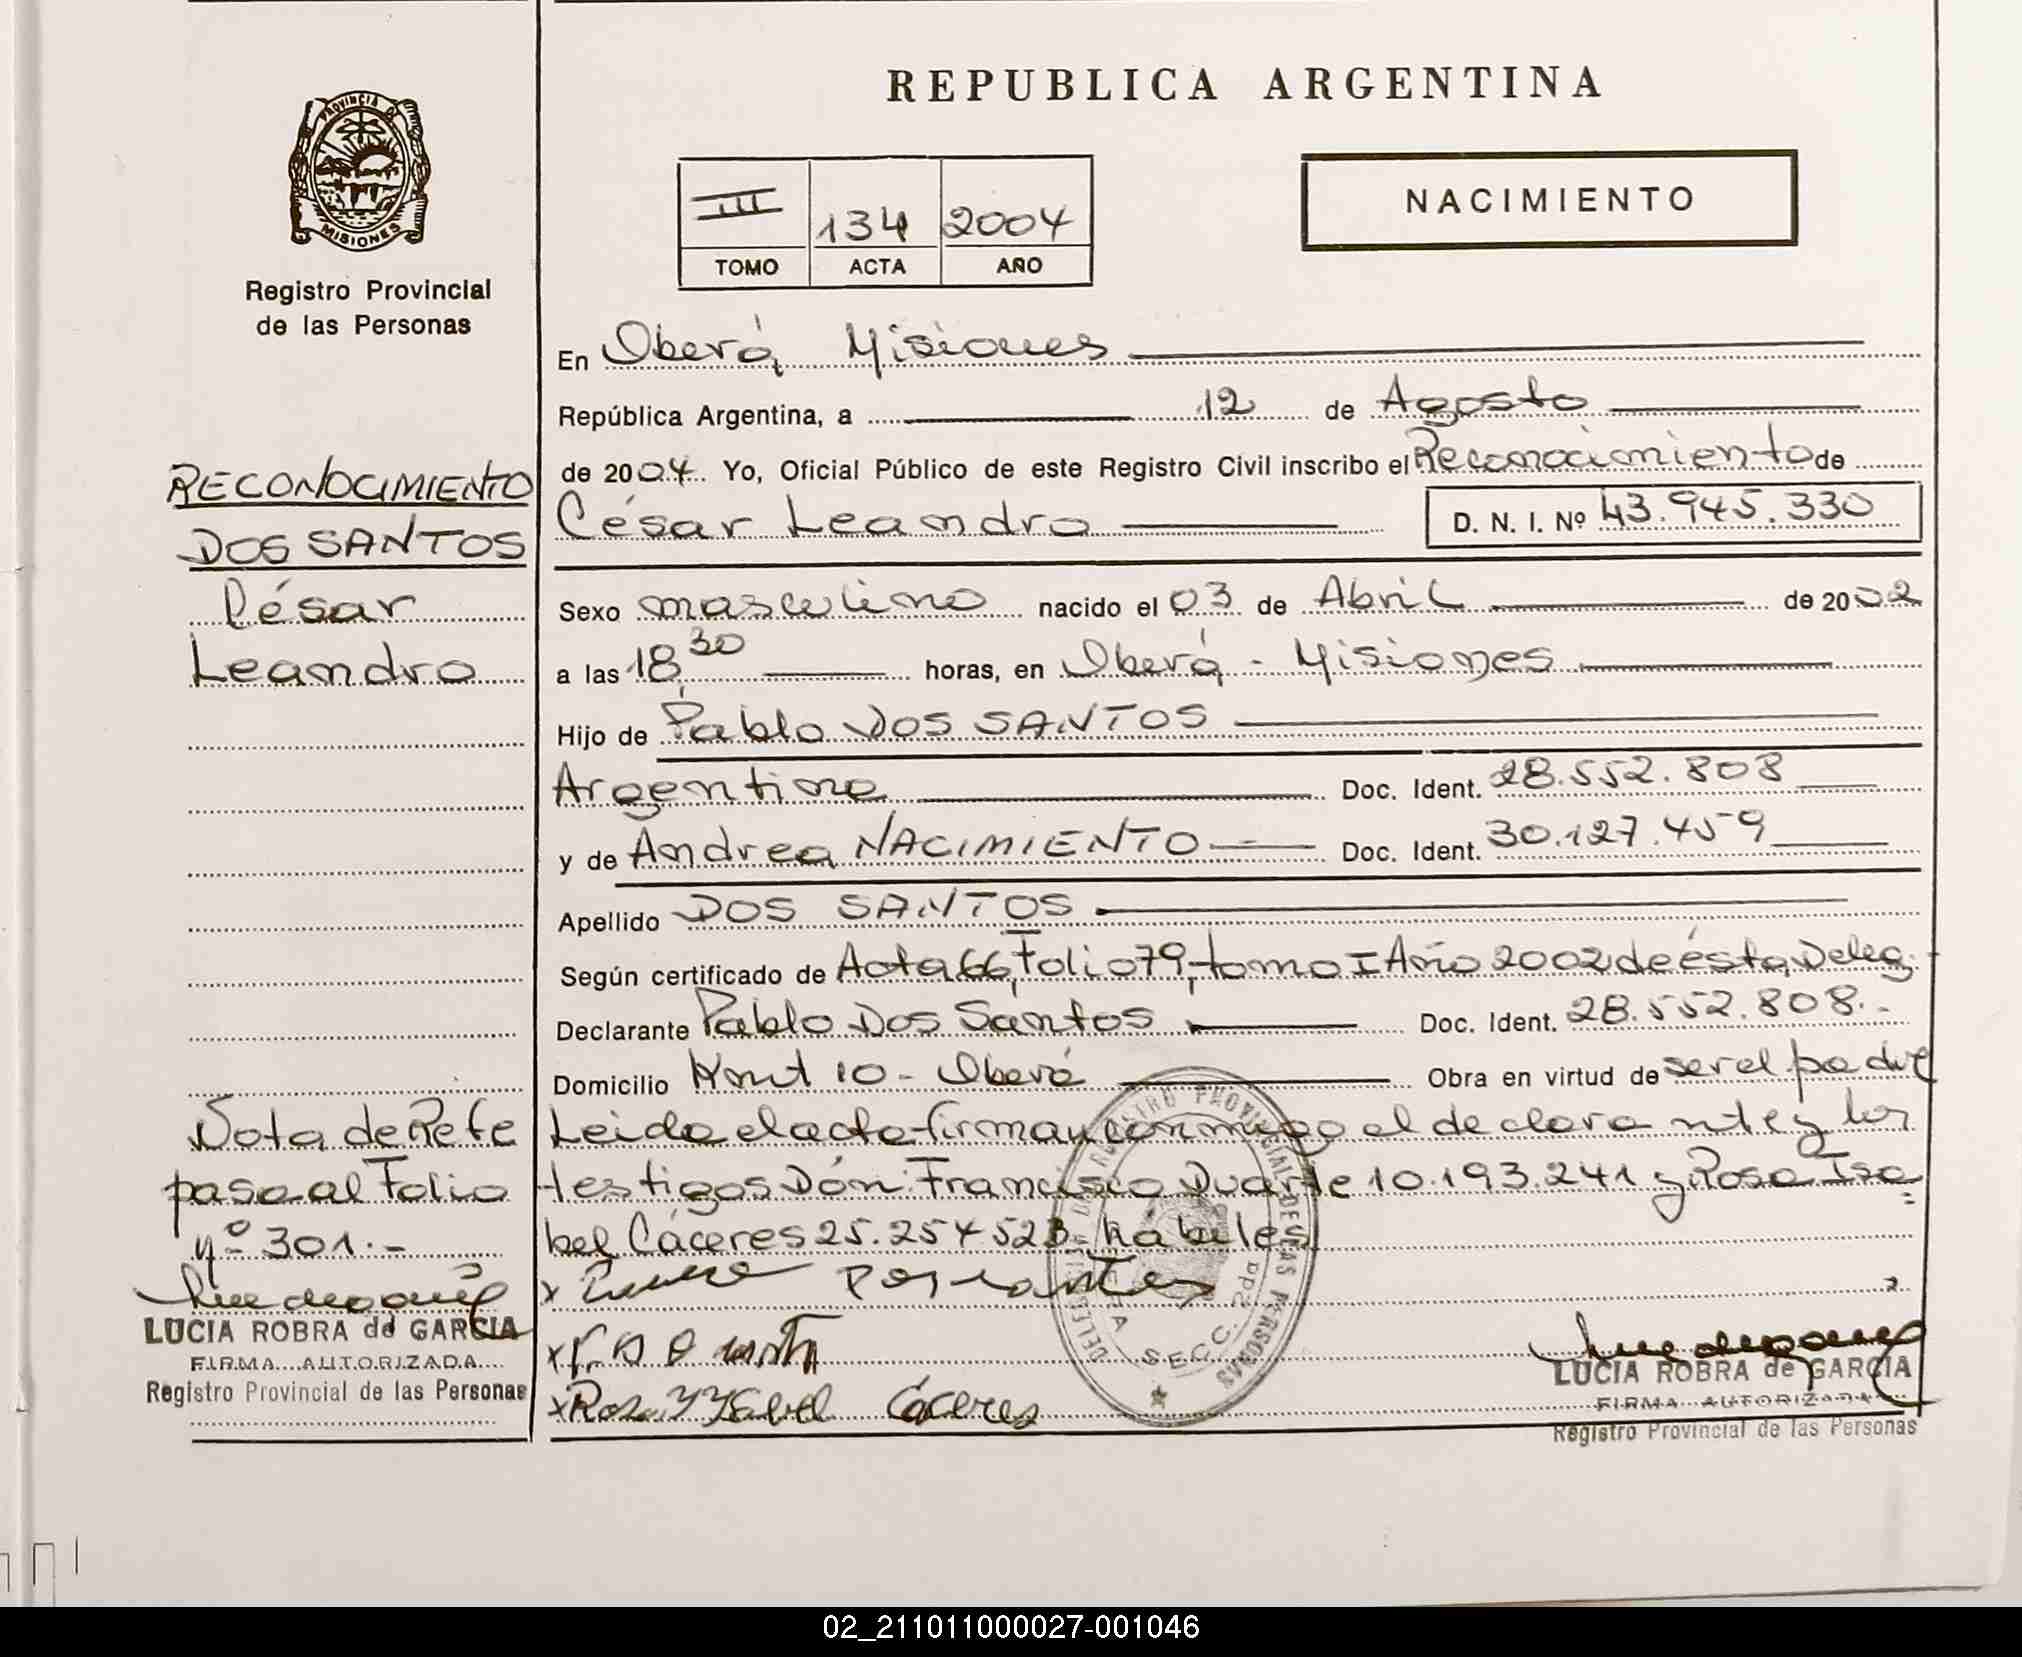 REPUBLICA ARGENTINA
PROVINCIA DE
MISIONES
Registro Provincial
de las Personas
III 134 2004
TOMO ACTA AÑO
NACIMIENTO
RECONOCIMIENTO
DOS SANTOS
César
Leandro
Nota de Refe
pase al Folio
nº 301.-
LUCIA ROBRA de GARCIA
FIRMA AUTORIZADA
Registro Provincial de las Personas
En Oberá Misiones
República Argentina, a 12 de Agosto
de 2004. Yo, Oficial Público de este Registro Civil inscribo el Reconocimiento de
César Leandro D. N. I. Nº 43.945.330
Sexo masculino nacido el 03 de Abril de 2002
a las 18,30 horas, en Oberá - Misiones
Hijo de Pablo DOS SANTOS
Argentino Doc. Ident. 28.552.808
y de Andrea NACIMIENTO Doc. Ident. 30.127.459
Apellido DOS SANTOS
Según certificado de Acta 66, Folio 79, tomo I Año 2002 de ésta Deleg.
Declarante Pablo Dos Santos Doc. Ident. 28.552.808.-
Domicilio 10 - Oberá Obra en virtud de ser el padre
Leida el acta firman conmigo el declarante y los
testigos Dón: Francisco Duarte 10.193.241 y Rosa Isa=
bel Cáceres 25.254523- habiles
x
x
x Rosa Ysabel Cáceres
REGISTRO PROVINCIAL DE LAS PERSONAS
SECC. 2da
LUCIA ROBRA de GARCIA
FIRMA AUTORIZADA
Registro Provincial de las Personas
02_211011000027-001046